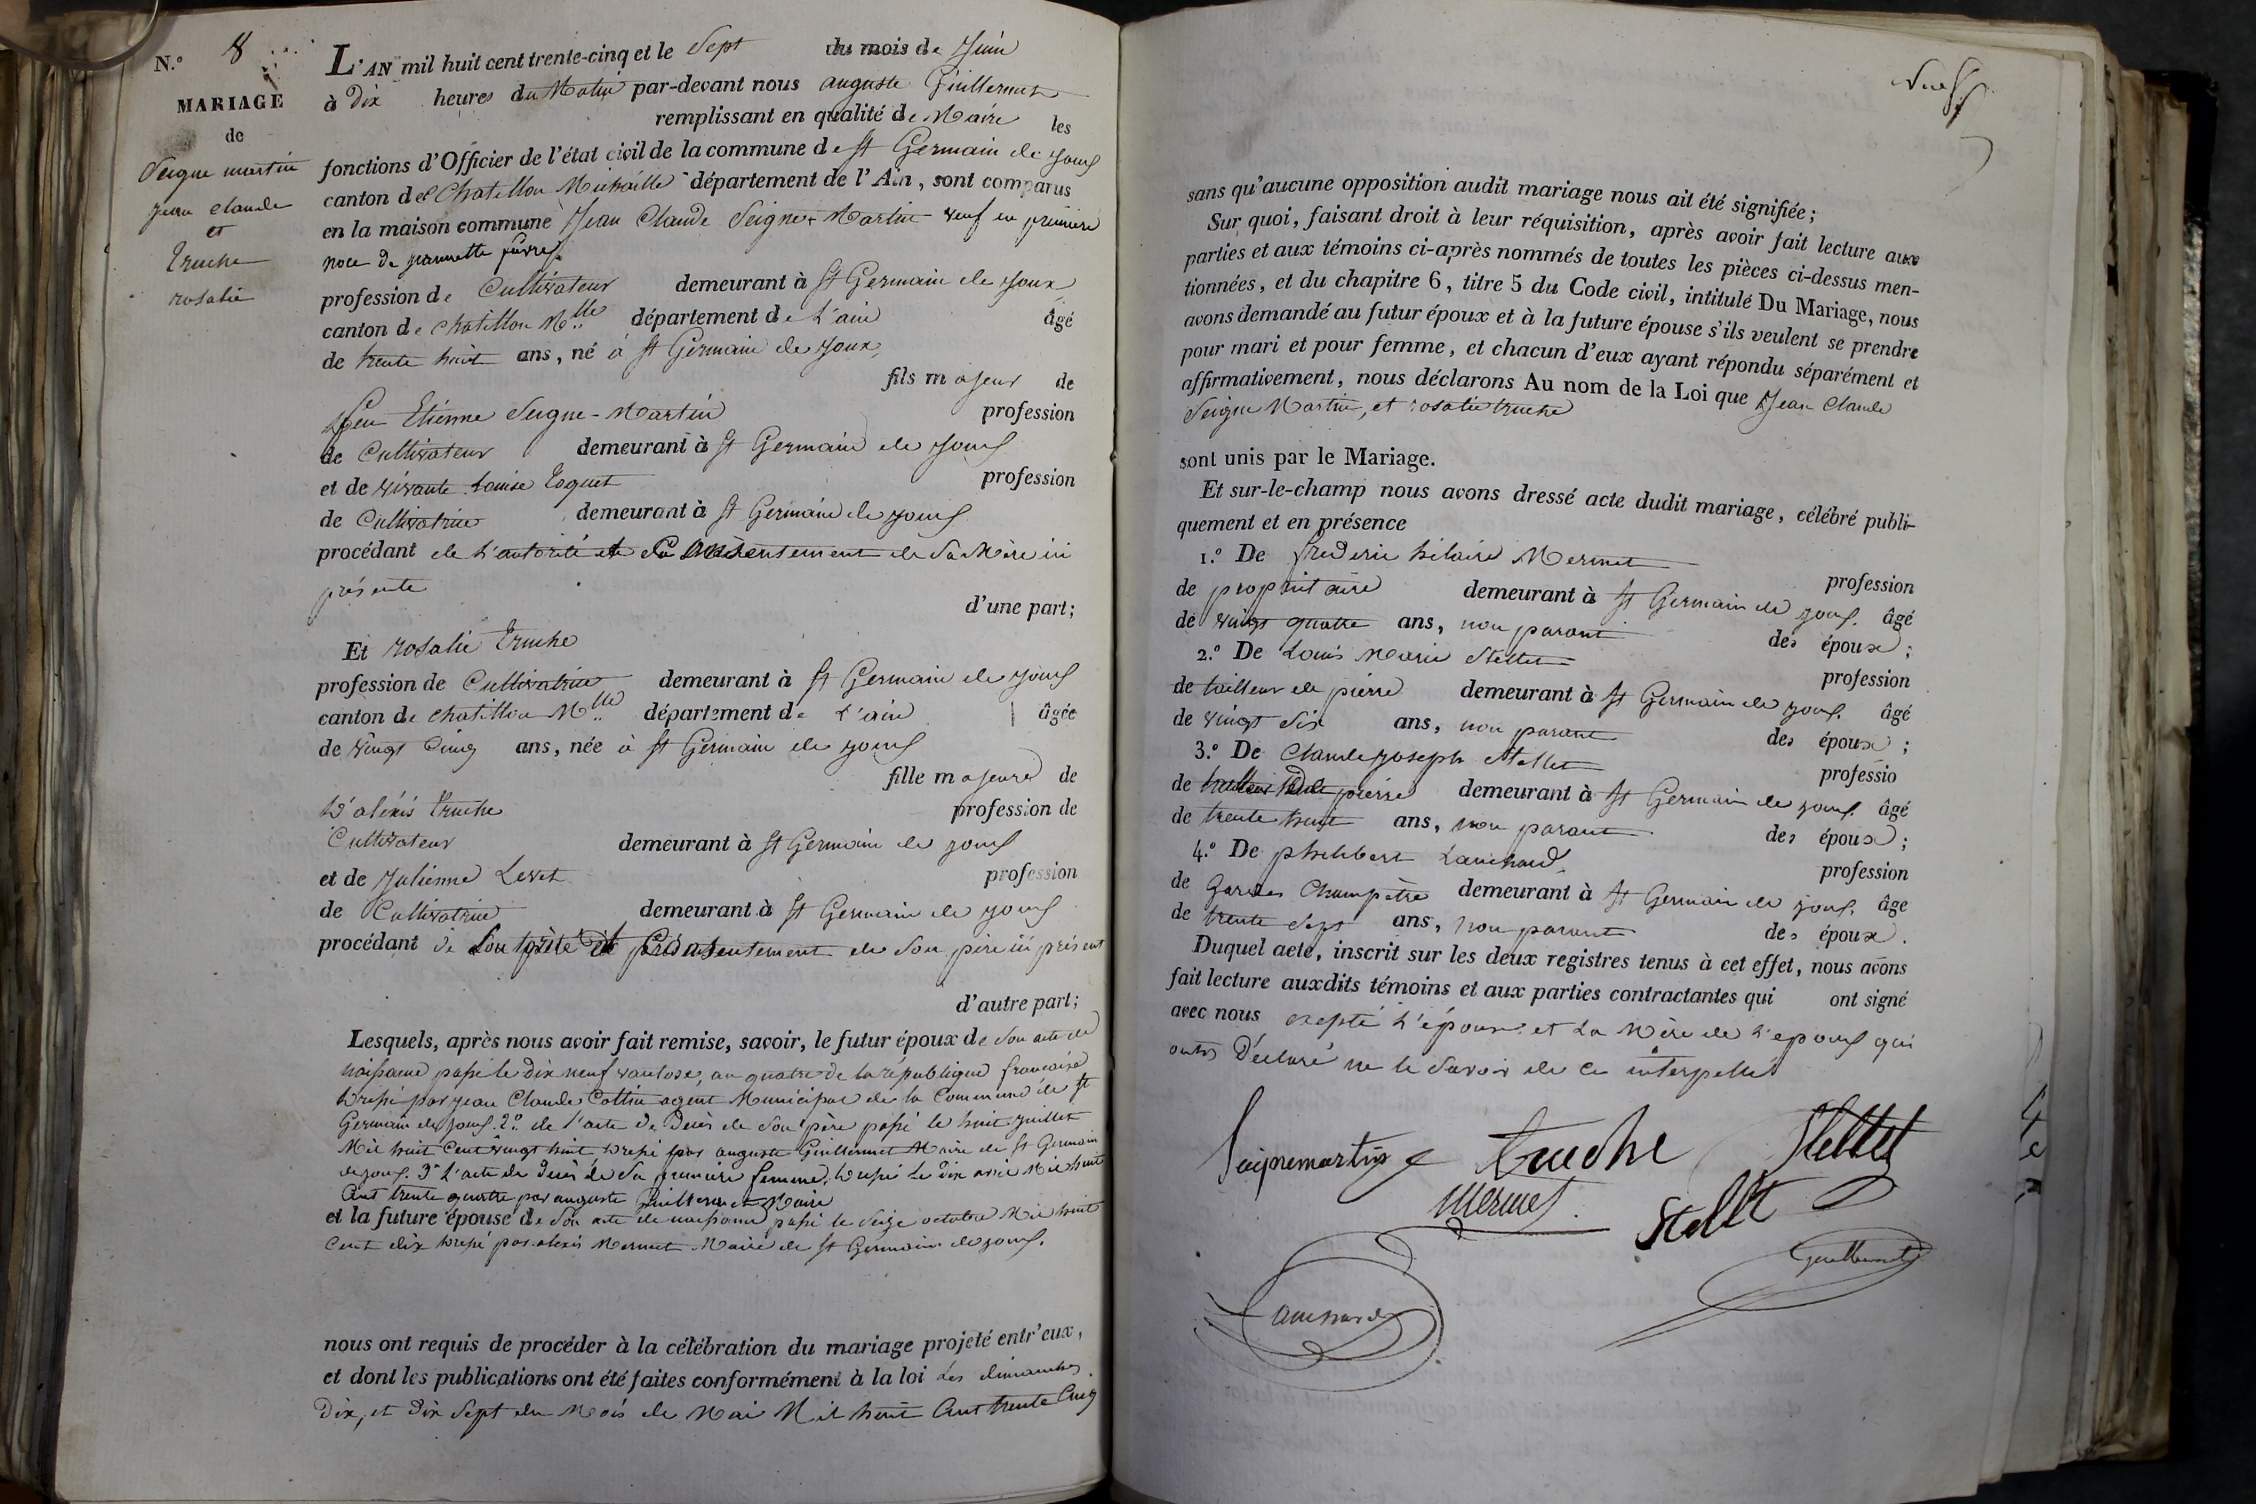 N.° 8
MARIAGE
de
Seigne martin
jean claude
et
Truche
rosalie
L'AN mil huit cent trente-cinq et le Sept du mois de Juin
à Dix heures du Matin par-devant nous auguste Guillermet
remplissant en qualité de Maire les
fonctions d'Officier de l'état civil de la commune de St Germain de Joux
canton de Chatillon Michaille département de l'Ain, sont comparus
en la maison commune Jean Claude Seigne Martin veuf en première
noce de jeannette favre
profession de Cultivateur demeurant à St Germain de Joux
canton de chatillon Mlle département de L'ain âgé
de trente huit ans, né à St Germain de Joux,
fils majeur de
feu Etienne Seigne-Martin profession
de Cultivateur demeurant à St Germain de Joux
et de vivante Louise Toquet profession
de Cultivatrice demeurant à St Germain de Joux
procédant de L'autorité et du Consentement de Sa Mère ici
présente
d'une part;
Et rosalie Truche
profession de Cultivatrice demeurant à St Germain de Joux
canton de chatillon Mlle département de L'ain âgée
de vingt Cinq ans, née à St Germain de Joux
fille majeure de
D'alexis Truche profession de
Cultivateur demeurant à St Germain de Joux
et de Julienne Levet profession
de Cultivatrice demeurant à St Germain de Joux
procédant de L'autorité et Consentement de Son père ici présent
d'autre part;
Lesquels, après nous avoir fait remise, savoir, le futur époux de Son acte de
naissance passé le dix neuf vantose, an quatre de la république francaise
Dressé par jean Claude Cottin agent Municipal de la Commune de St
Germain de Joux. 2.° de l'acte de Décès de Son père passé le huit juillet
Mil huit Cent vingt huit Dressé par auguste Guillermet Maire de St Germain
de joux. 3° L'acte de Décès de Sa première femme, Dressé Le Dix avril Mil huit
Cent trente quatre par auguste Guillermet Maire
et la future épouse de Son acte de naissance passé le Seize octobre Mil huit
Cent dix Dressé par alexis Mermet Maire de St Germain de joux.
nous ont requis de procéder à la célébration du mariage projeté entr'eux,
et dont les publications ont été faites conformément à la loi Les dimanches
Dix, et Dix Sept du Mois de Mai Mil huit Cent trente Cinq
sans qu'aucune opposition audit mariage nous ait été signifiée;
Sur quoi, faisant droit à leur réquisition, après avoir fait lecture aux
parties et aux témoins ci-après nommés de toutes les pièces ci-dessus men-
tionnées, et du chapitre 6, titre 5 du Code civil, intitulé Du Mariage, nous
avons demandé au futur époux et à la future épouse s'ils veulent se prendre
pour mari et pour femme, et chacun d'eux ayant répondu séparément et
affirmativement, nous déclarons Au nom de la Loi que Jean Claude
Seigne Martin, et rosalie truche
sont unis par le Mariage.
Et sur-le-champ nous avons dressé acte dudit mariage, célébré publi-
quement et en présence
1.° De frederic hilaire Mermet profession
de propriétaire demeurant à St Germain de joux. âgé
de vingt quatre ans, non parant des époux;
2.° De Louis Marie Stellet profession
de tailleur de pierre demeurant à St Germain de joux. âgé
de vingt Six ans, non parant des époux;
3.° De Claude joseph Stellet professio
de tailleur de pierre demeurant à St Germain de joux. âgé
de trente huit ans, non parant des époux;
4.° De philibert Lanchard profession
de Gardes Champêtre demeurant à St Germain de joux. âge
de trente Sept ans, non parant des époux.
Duquel acte, inscrit sur les deux registres tenus à cet effet, nous avons
fait lecture auxdits témoins et aux parties contractantes qui ont signé
avec nous excepté L'épouse et La Mère de L'epoux qui
ont Déclaré ne le Savoir de ce interpellés
Seignemartin truche Stellet
Mermet Stellet
Guillermet